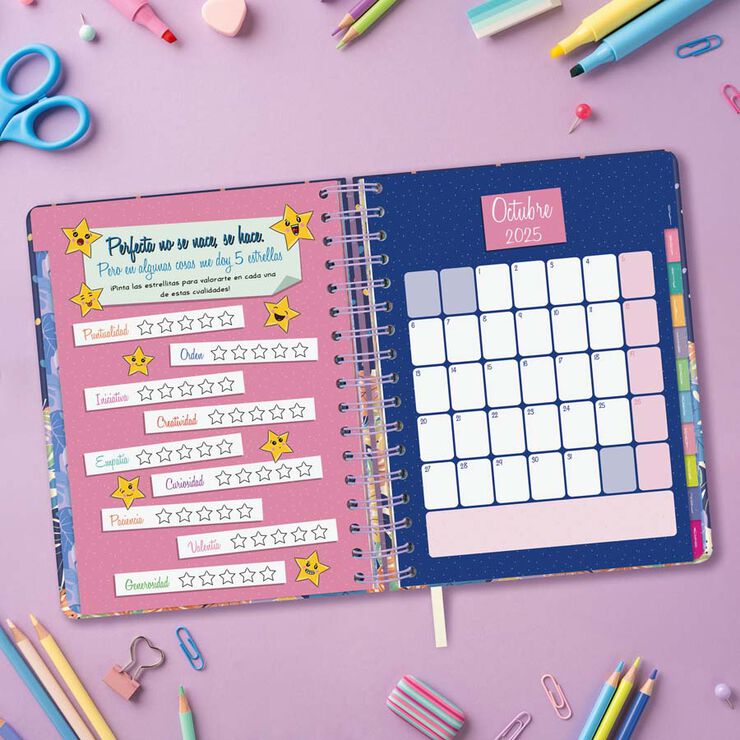 Perfecta no se nace, se hace.
Pero en algunas cosas me doy 5 estrellas
¡Pinta las estrellitas para valorarte en cada una
de estas cualidades!
Puntualidad
Orden
Iniciativa
Creatividad
Empatía
Curiosidad
Paciencia
Valentía
Generosidad
Octubre
2025
1 2 3 4 5
6 7 8 9 10 11
13 14 15 16 17 18 19
20 21 22 23 24 25
27 28 29 30 31